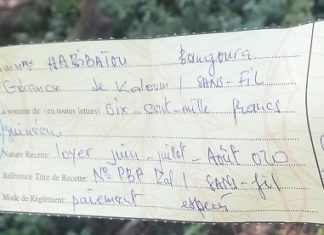 de Mme HABBATOU Bangoura
Gérance de Kaloum / SANS-FIL
somme de: (en toutes lettres) Six-cent-mille francs
guinéens
Nature Recette: loyer juin-juillet-Août 020
Référence Titre de Recette: N° PBP / SANS-fil
Mode de Règlement: paiement espece